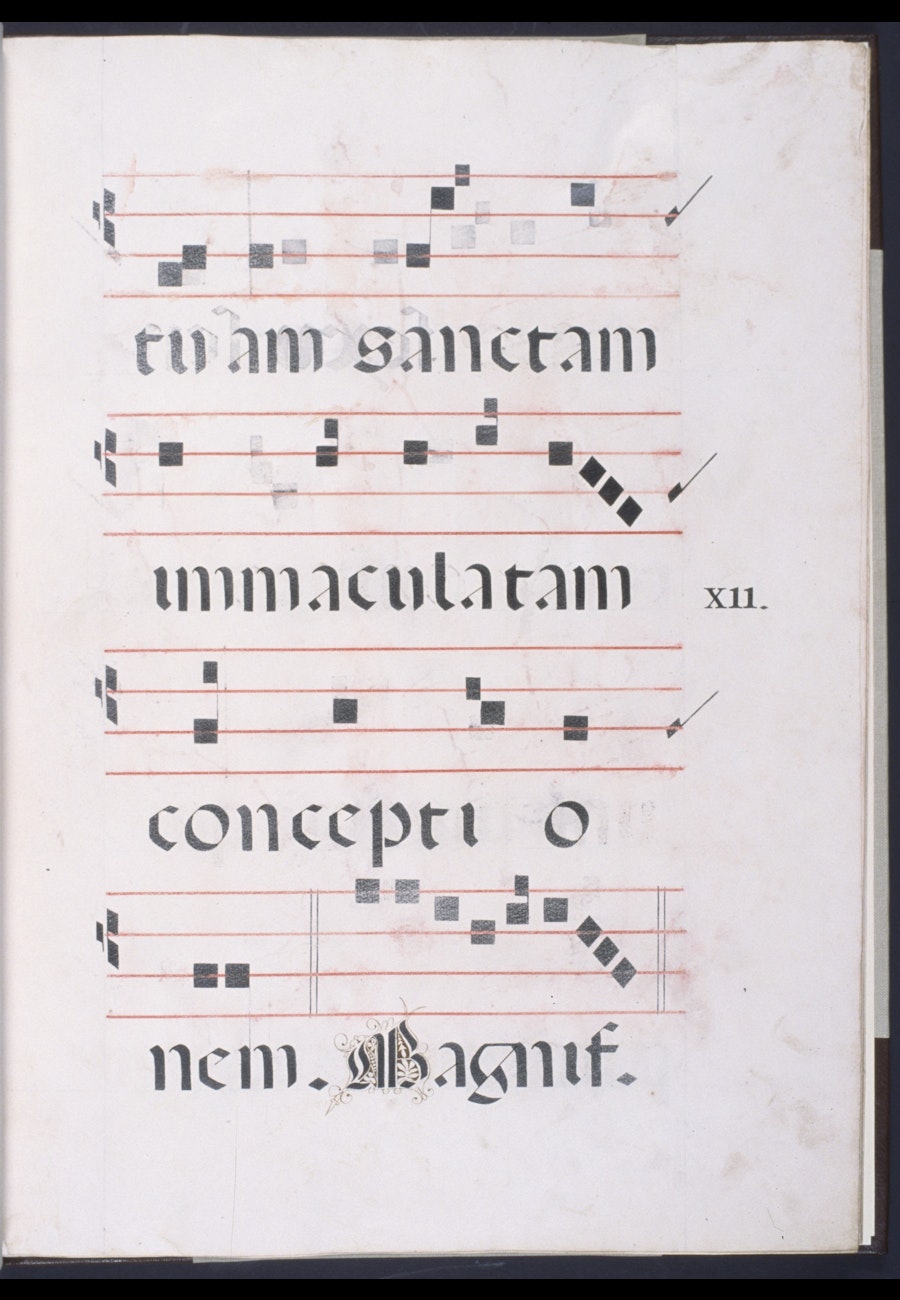 tuam sanctam
immaculatam
XII.
concepti o
nem. Magnif.